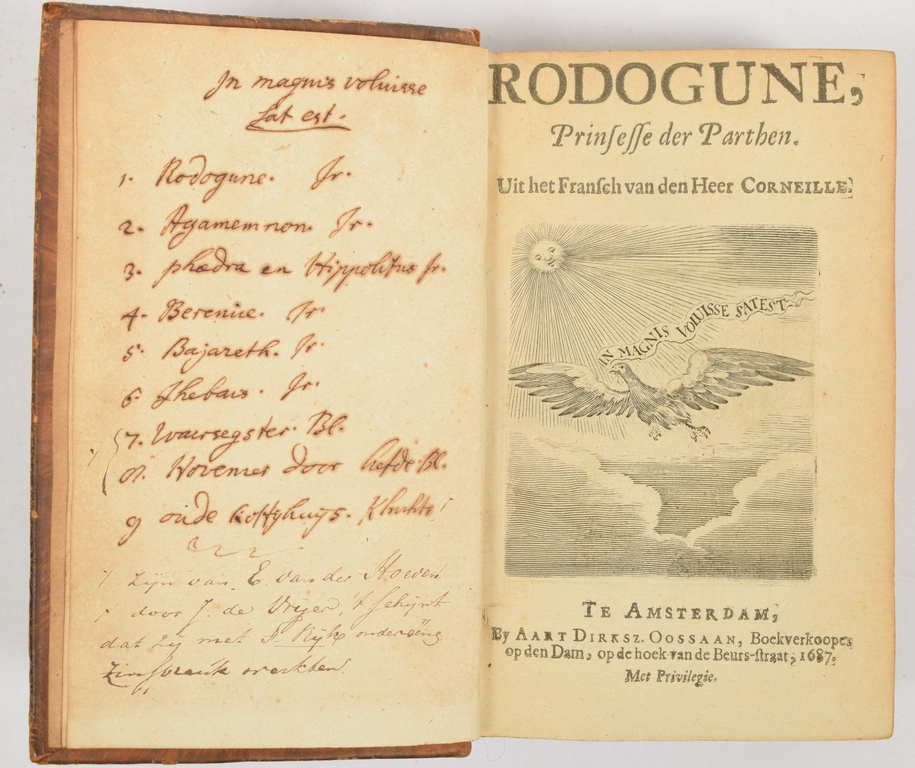 In magnis voluisse
sat est.
1. Rodogune. Tr.
2. Agamemnon. Tr.
3. phædra en Hippolitus Tr.
4. Berenice. Tr.
5. Bajareth. Tr.
6. Thebais. Tr.
7. Waersegster. Bl.
Hovenier door liefde. Bl.
9 oude Koffyhuys. Kluchts
zijn van E. van der Hoeven
door J. de Vrijer, 't schijnt
dat zij met
Zinspreuk werkten
RODOGUNE,
Prinſeſſe der Parthen.
Uit het Franſch van den Heer CORNEILLE.
IN MAGNIS VOLUISSE SAT EST
TE AMSTERDAM,
By AART DIRKSZ. OOSSAAN, Boekverkooper
op den Dam, op de hoek van de Beurs-ſtraat, 1687.
Met Privilegie.